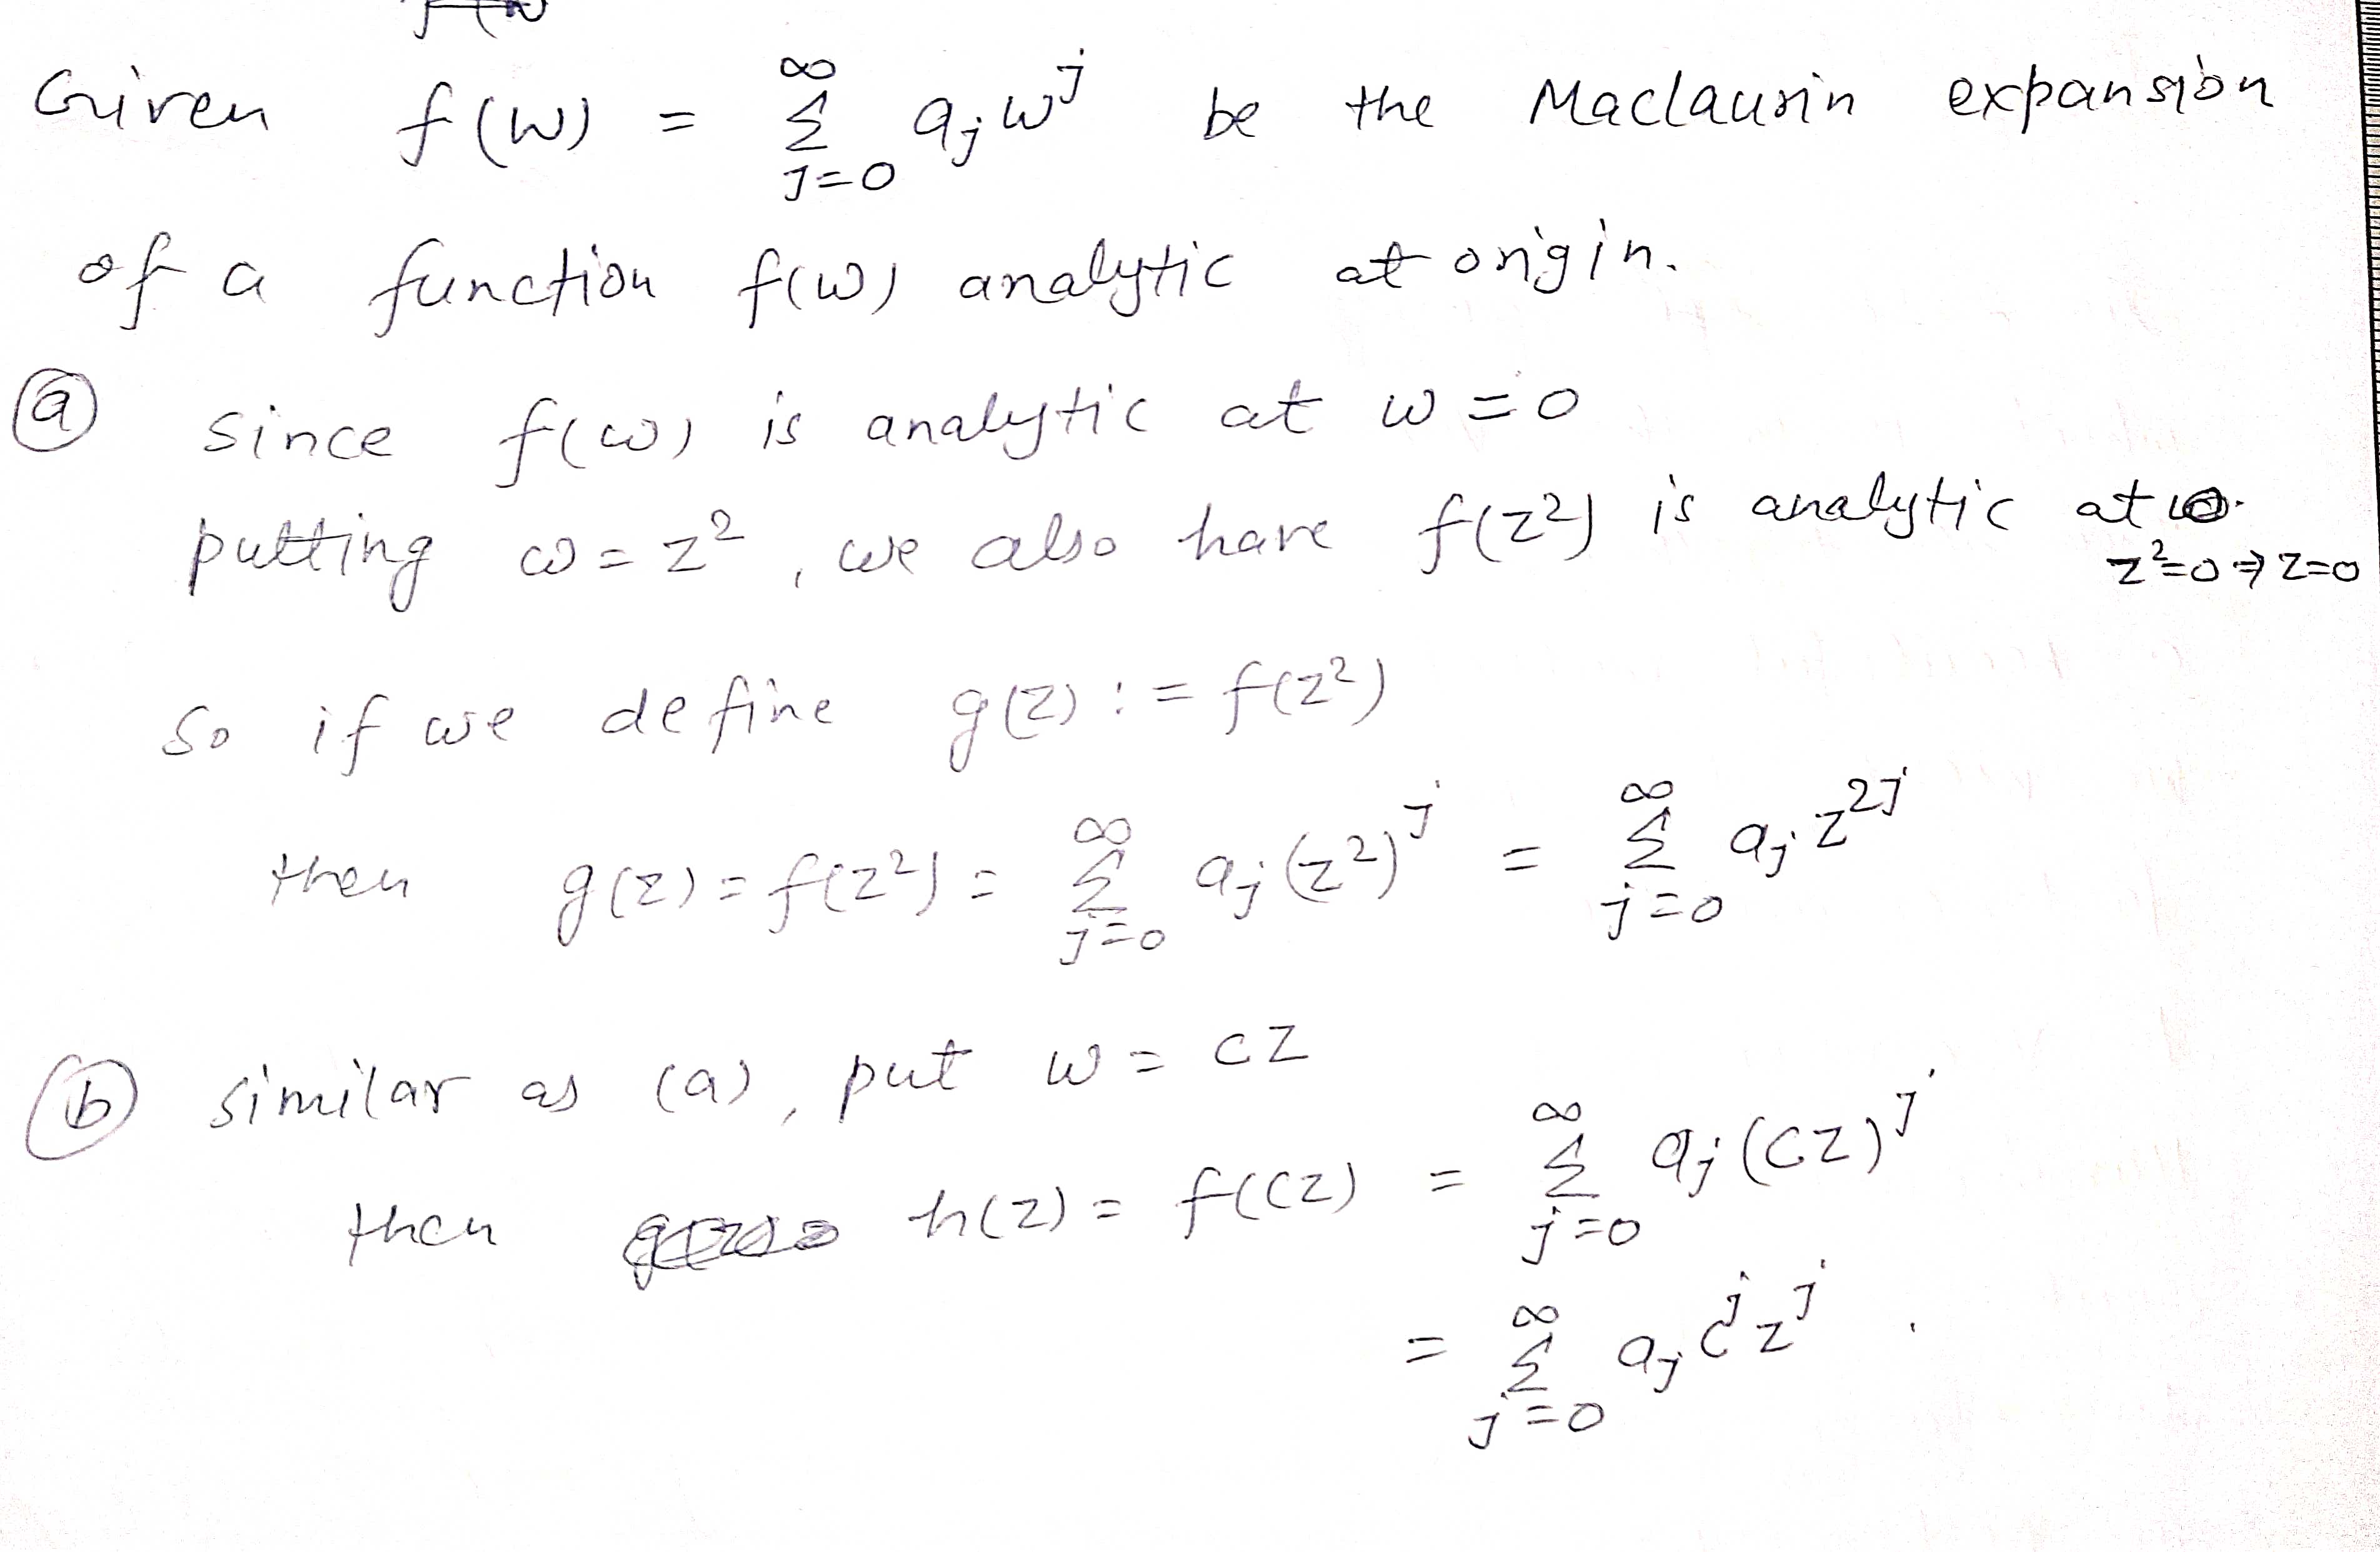 Given f(w) = ∞ Σ j=0 a_j w^j be the Maclaurin expansion
of a function f(w) analytic at origin.
(a) since f(w) is analytic at w = 0
putting w = z², we also have f(z²) is analytic at
z²=0 ⇒ z=0
So if we define g(z) := f(z²)
then g(z) = f(z²) = ∞ Σ j=0 a_j (z²)^j = ∞ Σ j=0 a_j z^2j
(b) similar as (a), put w = cz
then h(z) = f(cz) = ∞ Σ j=0 a_j (cz)^j
= ∞ Σ j=0 a_j c^j z^j .